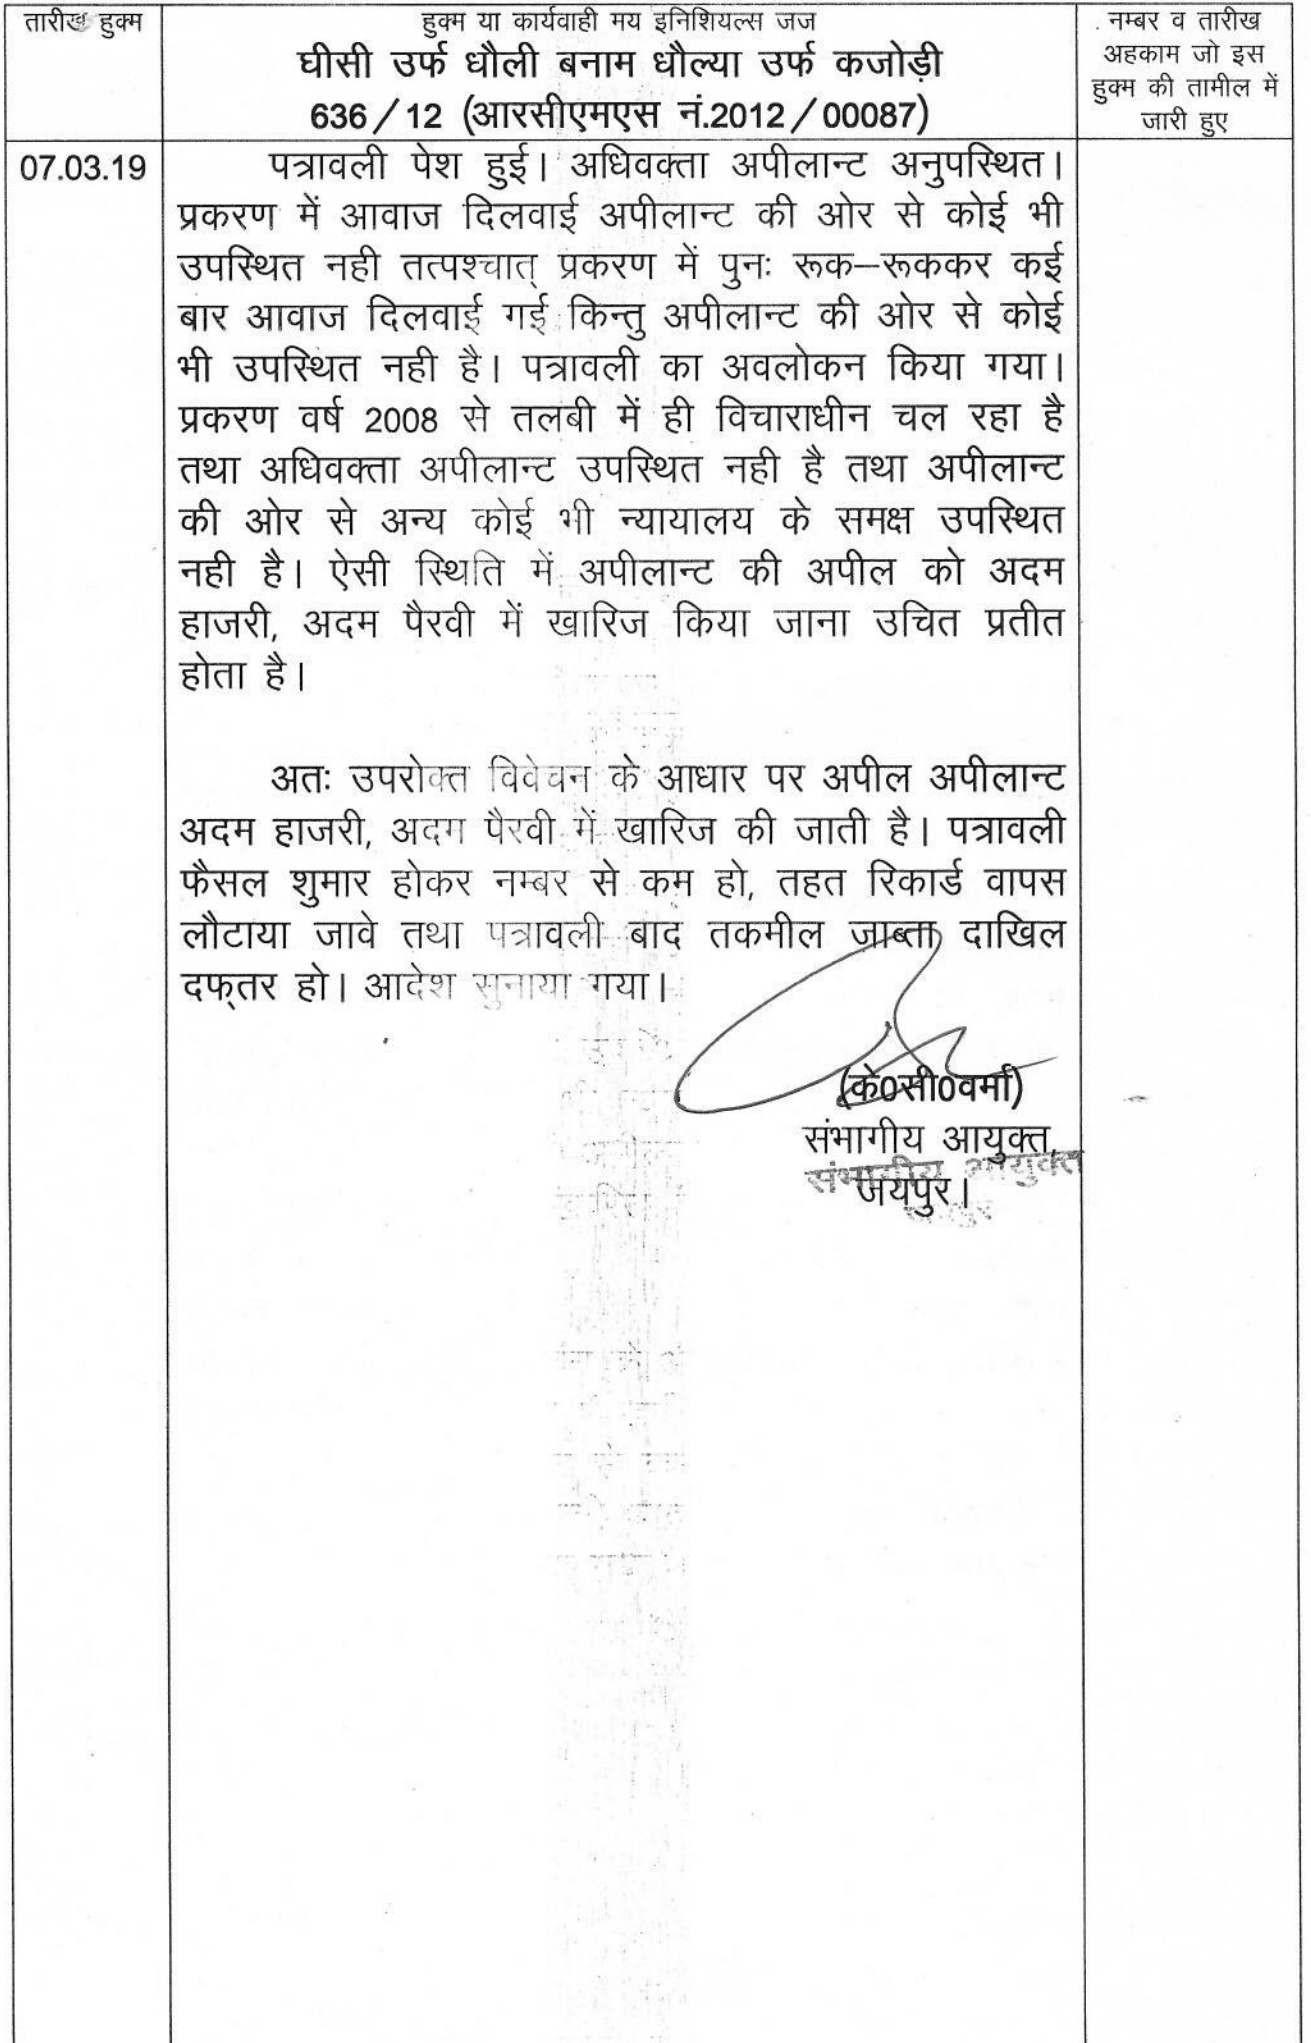 तारीख हुक्म
हुक्म या कार्यवाही मय इनिशियल्स जज
घीसी उर्फ धौली बनाम धौल्या उर्फ कजोड़ी
636/12 (आरसीएमएस नं.2012/00087)
नम्बर व तारीख
अहकाम जो इस
हुक्म की तामील में
जारी हुए
07.03.19
पत्रावली पेश हुई। अधिवक्ता अपीलान्ट अनुपस्थित।
प्रकरण में आवाज दिलवाई अपीलान्ट की ओर से कोई भी
उपस्थित नही तत्पश्चात् प्रकरण में पुनः रूक–रूककर कई
बार आवाज दिलवाई गई किन्तु अपीलान्ट की ओर से कोई
भी उपस्थित नही है। पत्रावली का अवलोकन किया गया।
प्रकरण वर्ष 2008 से तलबी में ही विचाराधीन चल रहा है
तथा अधिवक्ता अपीलान्ट उपस्थित नही है तथा अपीलान्ट
की ओर से अन्य कोई भी न्यायालय के समक्ष उपस्थित
नही है। ऐसी स्थिति में अपीलान्ट की अपील को अदम
हाजरी, अदम पैरवी में खारिज किया जाना उचित प्रतीत
होता है।
अतः उपरोक्त विवेचन के आधार पर अपील अपीलान्ट
अदम हाजरी, अदम पैरवी में खारिज की जाती है। पत्रावली
फैसल शुमार होकर नम्बर से कम हो, तहत रिकार्ड वापस
लौटाया जावे तथा पत्रावली बाद तकमील जाब्ता दाखिल
दफ्तर हो। आदेश सुनाया गया।
(के0सी0वर्मा)
संभागीय आयुक्त,
संभागीय आयुक्त
जयपुर।